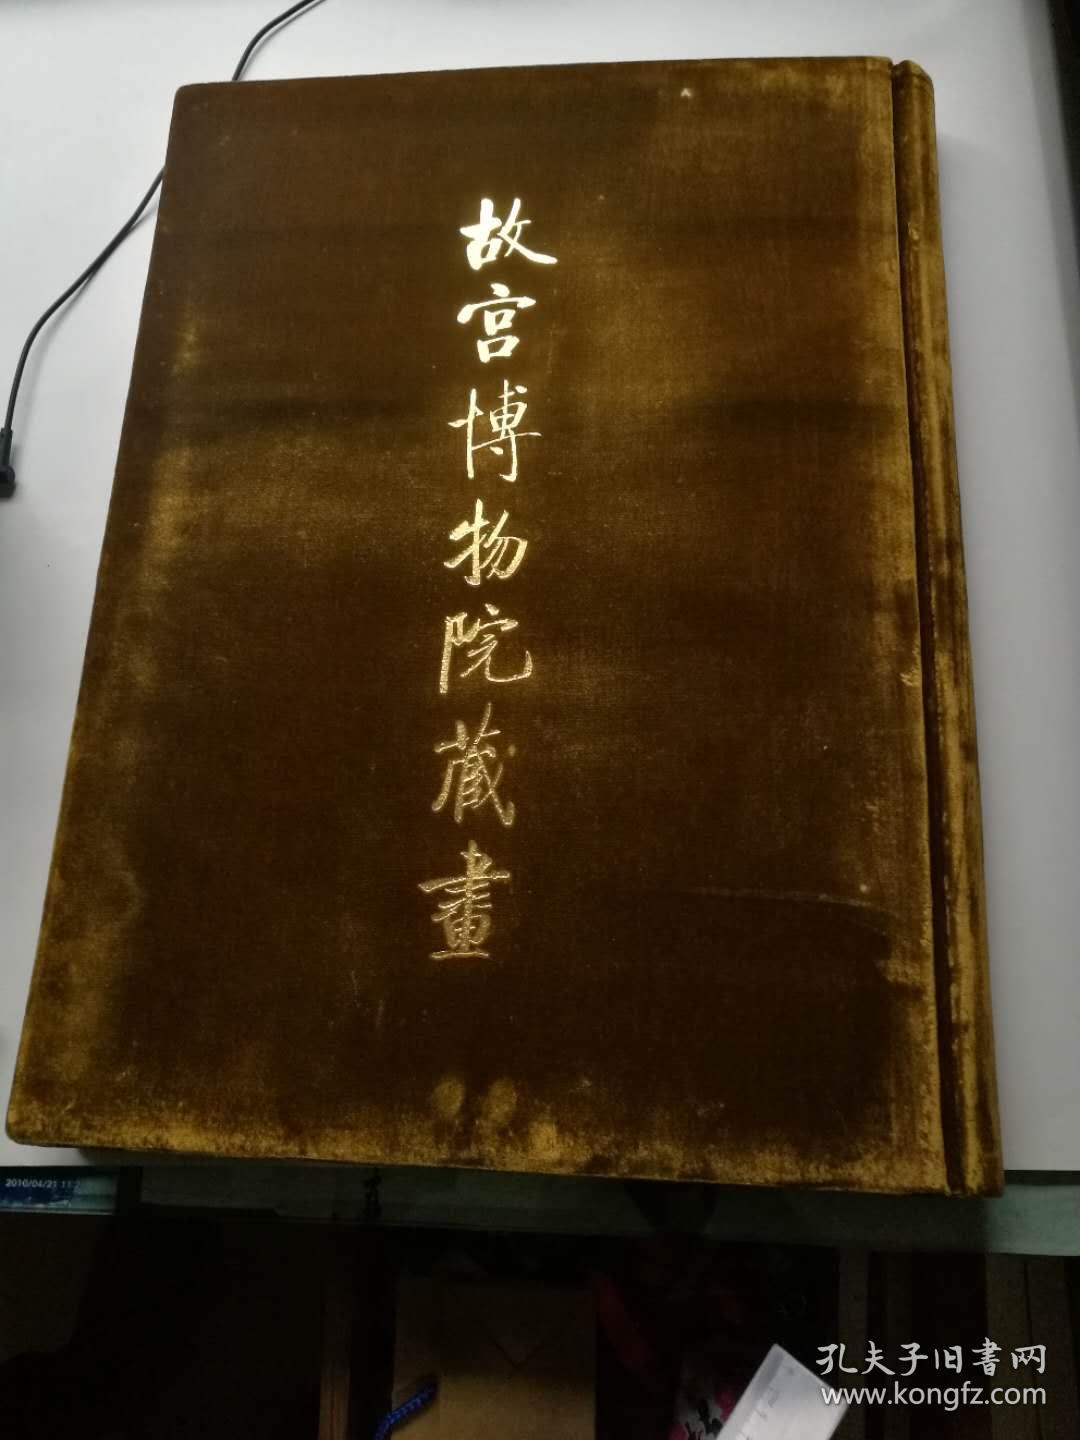 故宫博物院藏畫
2010/04/21 11:2
孔夫子旧書网
www.kongfz.com